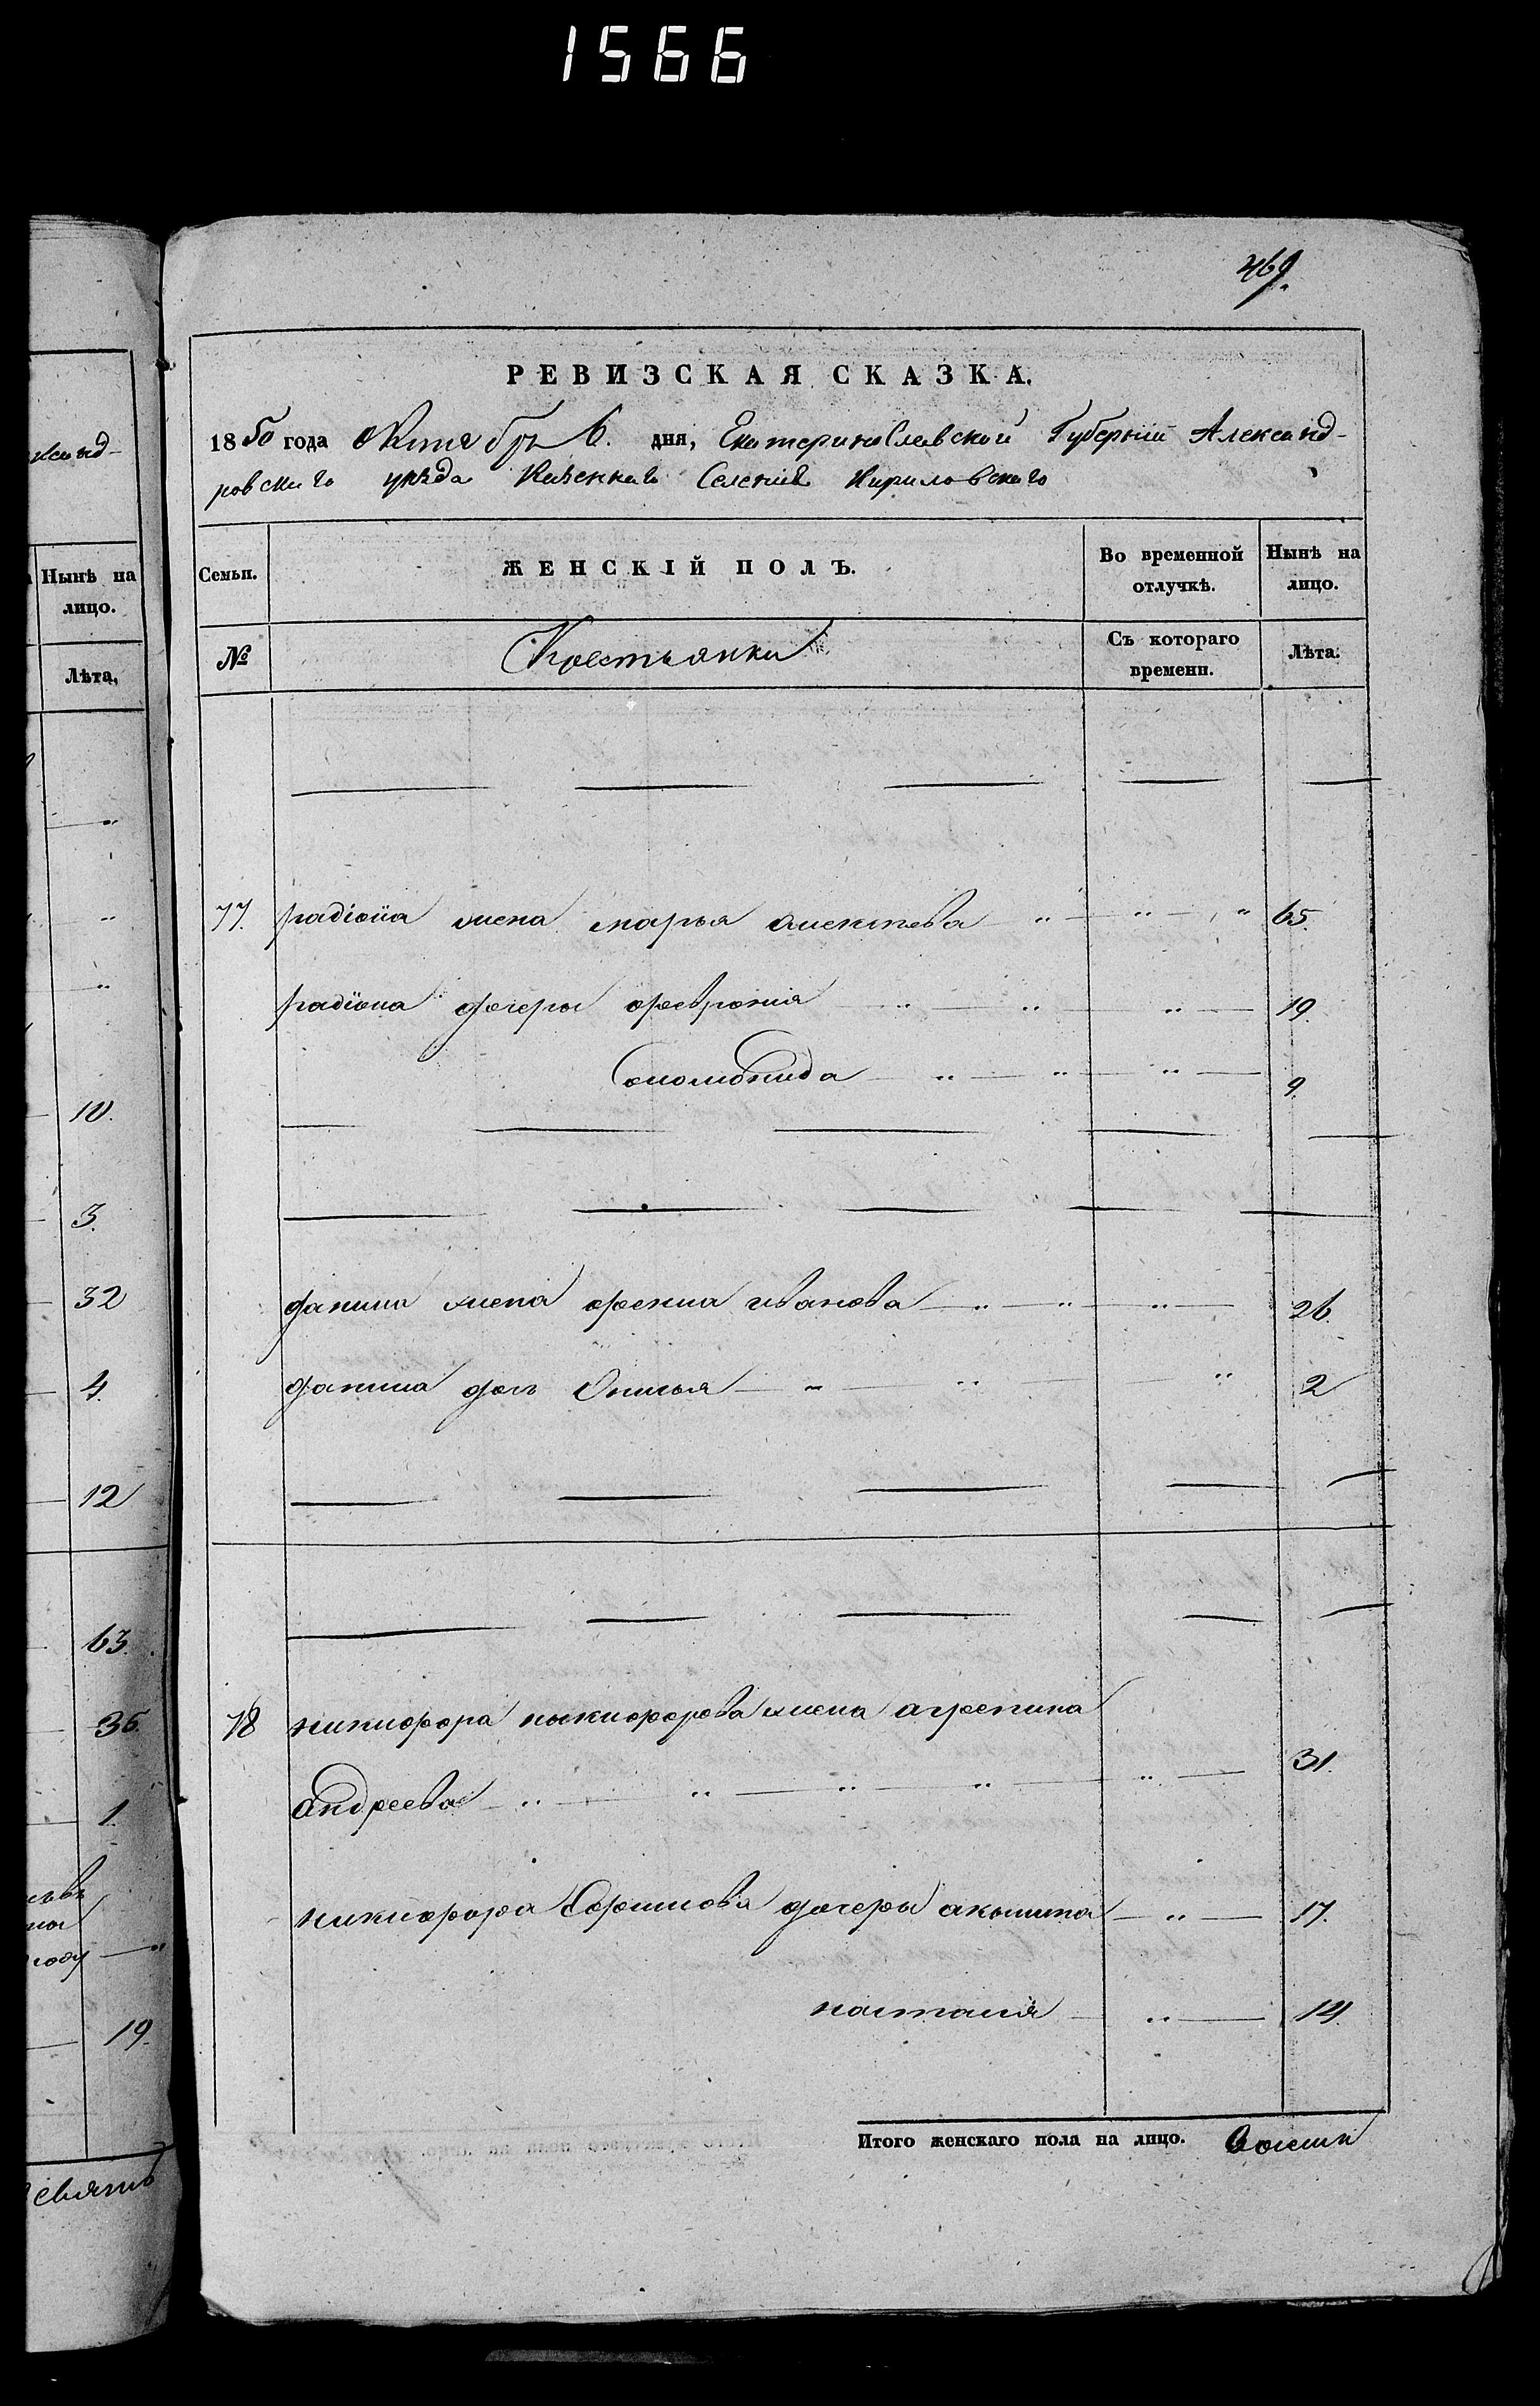 1566
469.
РЕВИЗСКАЯ СКАЗКА.
1850 года октября 6. дня, Екатеринославской Губернии Александ-
ровскаго уезда Казеннаго Селения Кириловскаго
Семьи.
ЖЕНСКІЙ ПОЛЪ.
Во временной отлучкѣ.
Нынѣ на лицо.
№
Крестьянки
Съ котораго времени.
Лѣта.
77. радіона жена марья алексѣева " " " 65.
радіона дочеры феврония " " " 19.
Соломонида " " " 9.
данила жена фекла иванова " " " 26.
данила доч " " " 2
78 никифора никифорова жена агрепина
андреева " " " " 31.
никифора Ефимова дочеры акылина " 17.
наталия " 14.
Итого женскаго пола на лицо. восемь
ксанд-
Нынѣ на
лицо.
Лѣта.
"
"
"
10.
3.
32
4.
12
63.
36.
1.
году "
19.